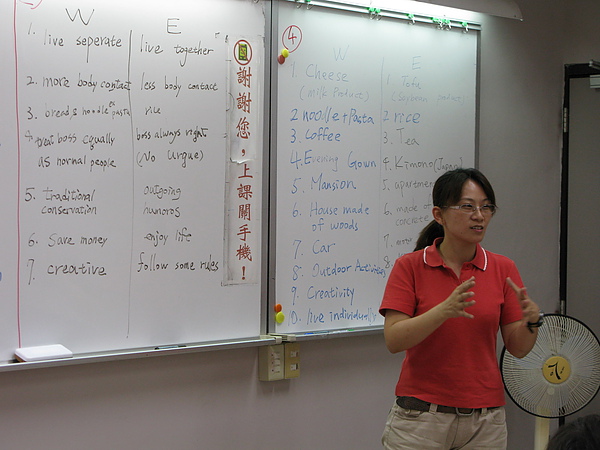 W E
1. live seperate live together
2. more body contact less body contace
3. bread & noodle or pasta rice
4. treat boss equally boss always right
as normal people (No urgue)
5. traditional outgoing
conservation humoros
6. Save money enjoy life
7. creative follow some rules
謝謝您，上課關手機！
4
W E
1. Cheese 1. Tofu
(milk product) (Soybean product)
2 noodle + Pasta 2 rice
3. Coffee 3. Tea
4. Evening Gown 4. Kimono (Japan)
5. Mansion 5. apartment
6. House made 6. made of
of woods concrete
7. Car 7.
8. Outdoor Activities 8
9. Creativity
10. live individually